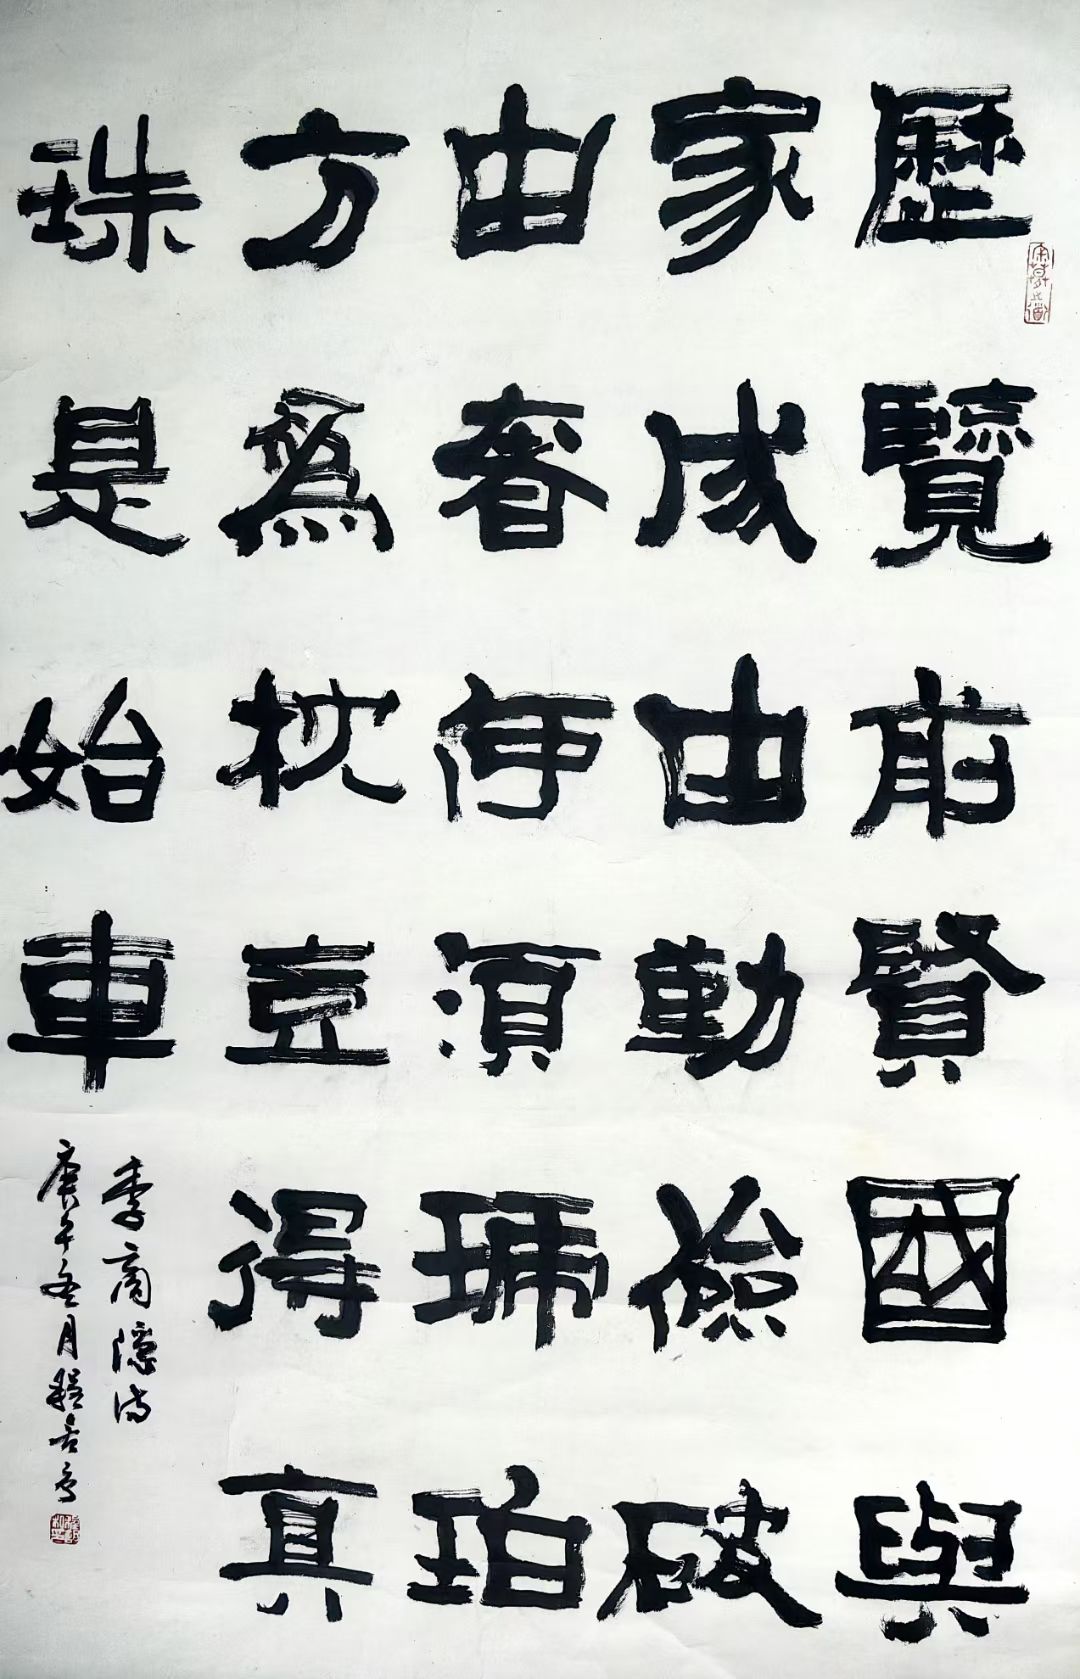 歷覽前賢國與
家成由勤儉破
由奢何須琥珀
方爲枕豈得真
珠是始車
李商隱詩
庚午冬月